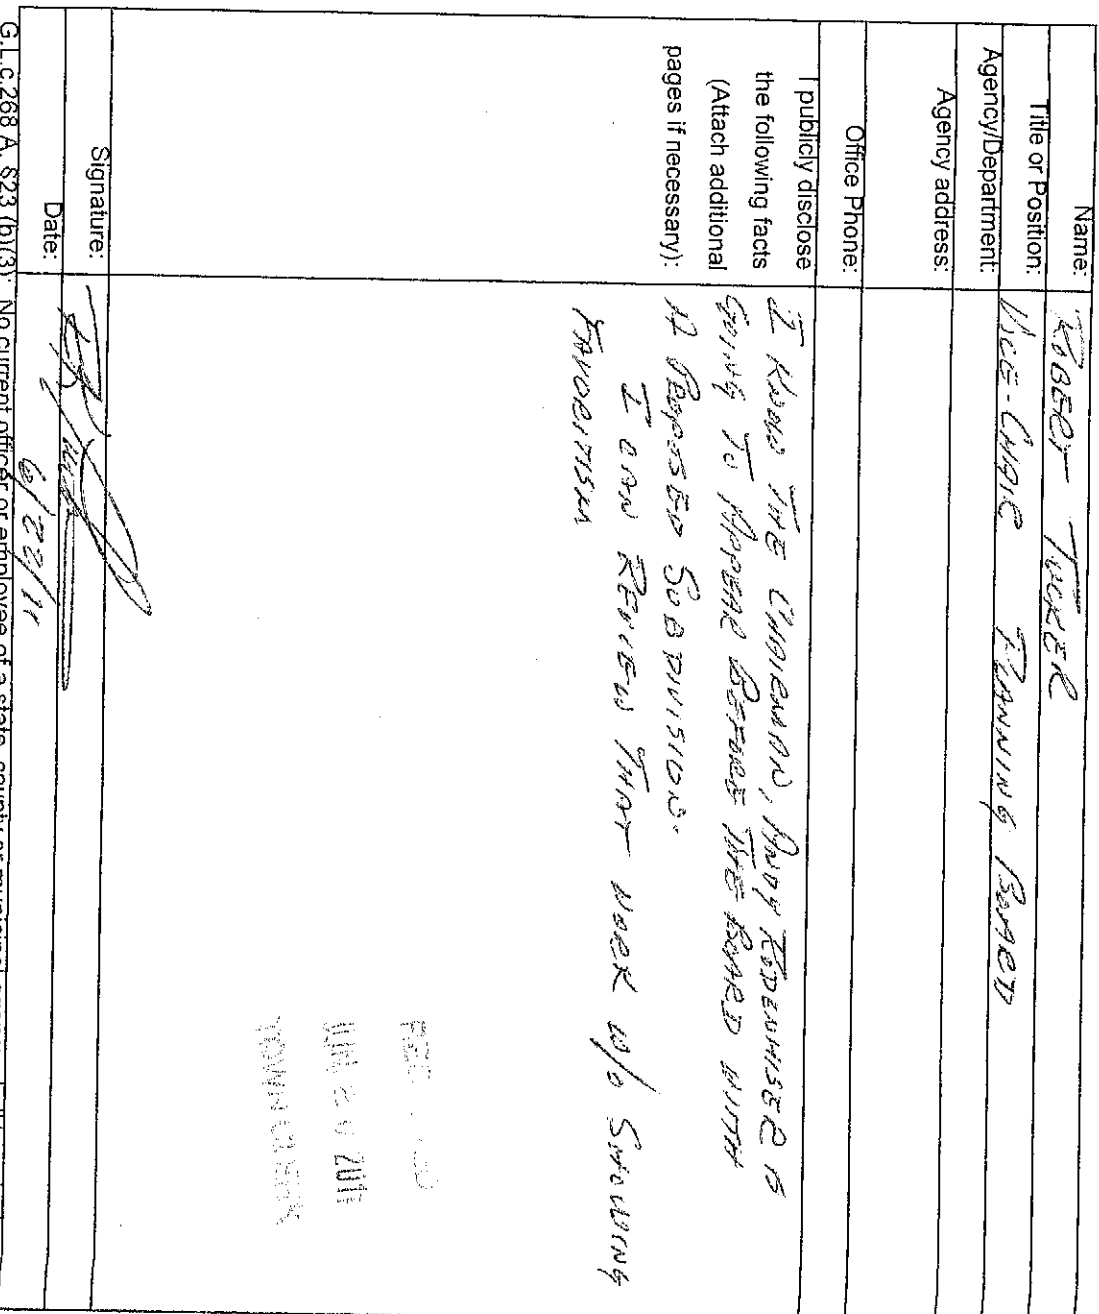 Name: ROBERT TUCKER
Title or Position: VICE-CHAIR PLANNING BOARD
Agency/Department:
Agency address:
Office Phone:
I publicly disclose
the following facts
(Attach additional
pages if necessary):
I KNOW THE CHAIRMAN, ANDY RODENHISER IS
GOING TO APPEAR BEFORE THE BOARD WITH
A PROPOSED SUBDIVISION.
I CAN REVIEW THAT WORK W/O SHOWING
FAVORITISM
TOWN CLERK
Signature:
Date: 6/22/11
G.L.c.268 A, §23 (b)(3): No current officer or employee of a state, county or municipal